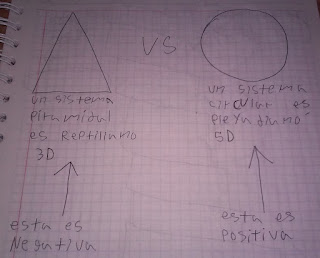 VS
un sistema
piramidal
es Reptiliano
3D
esta es
Negativa
un sistema
circular es
pleyadiano
5D
esta es
positiva